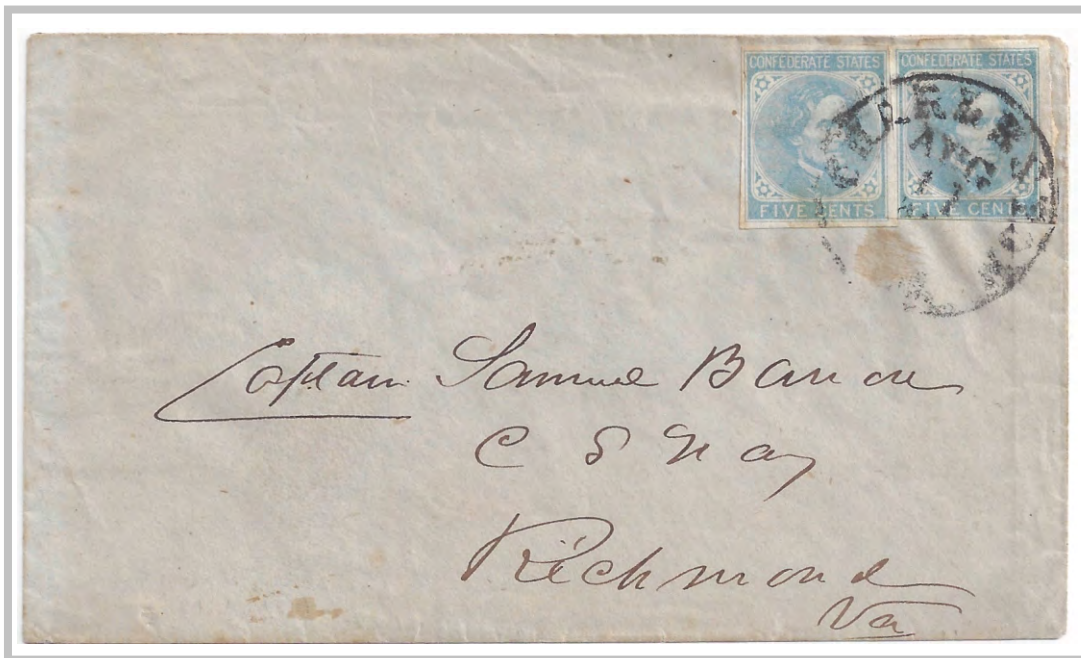 CONFEDERATE STATES CONFEDERATE STATES
FIVE CENTS FIVE CENTS
AUG
Captain Samuel Barron
C S Navy
Richmond
Va